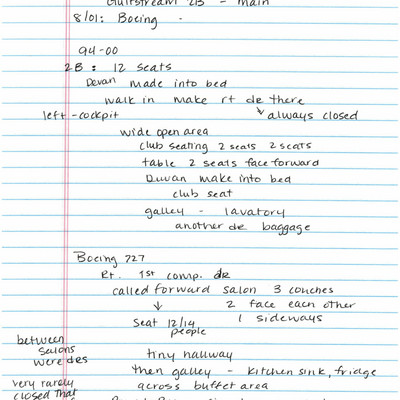 Gulfstream 2B - main
8/01: Boeing -
94-00
2B: 12 seats
Devan made into bed
walk in make rt de there
left - cockpit ↓ always closed
wide open area
club seating 2 seats 2 seats
table 2 seats face forward
Duvan make into bed
club seat
galley - lavatory
another de baggage
Boeing 727
Rt. 1st comp. de
called forward salon 3 couches
↓ 2 face each other
Seat 12/14 1 sideways
people
between
salons
were des
tiny hallway
then galley - kitchen sink, fridge
very rarely across buffet area
closed That